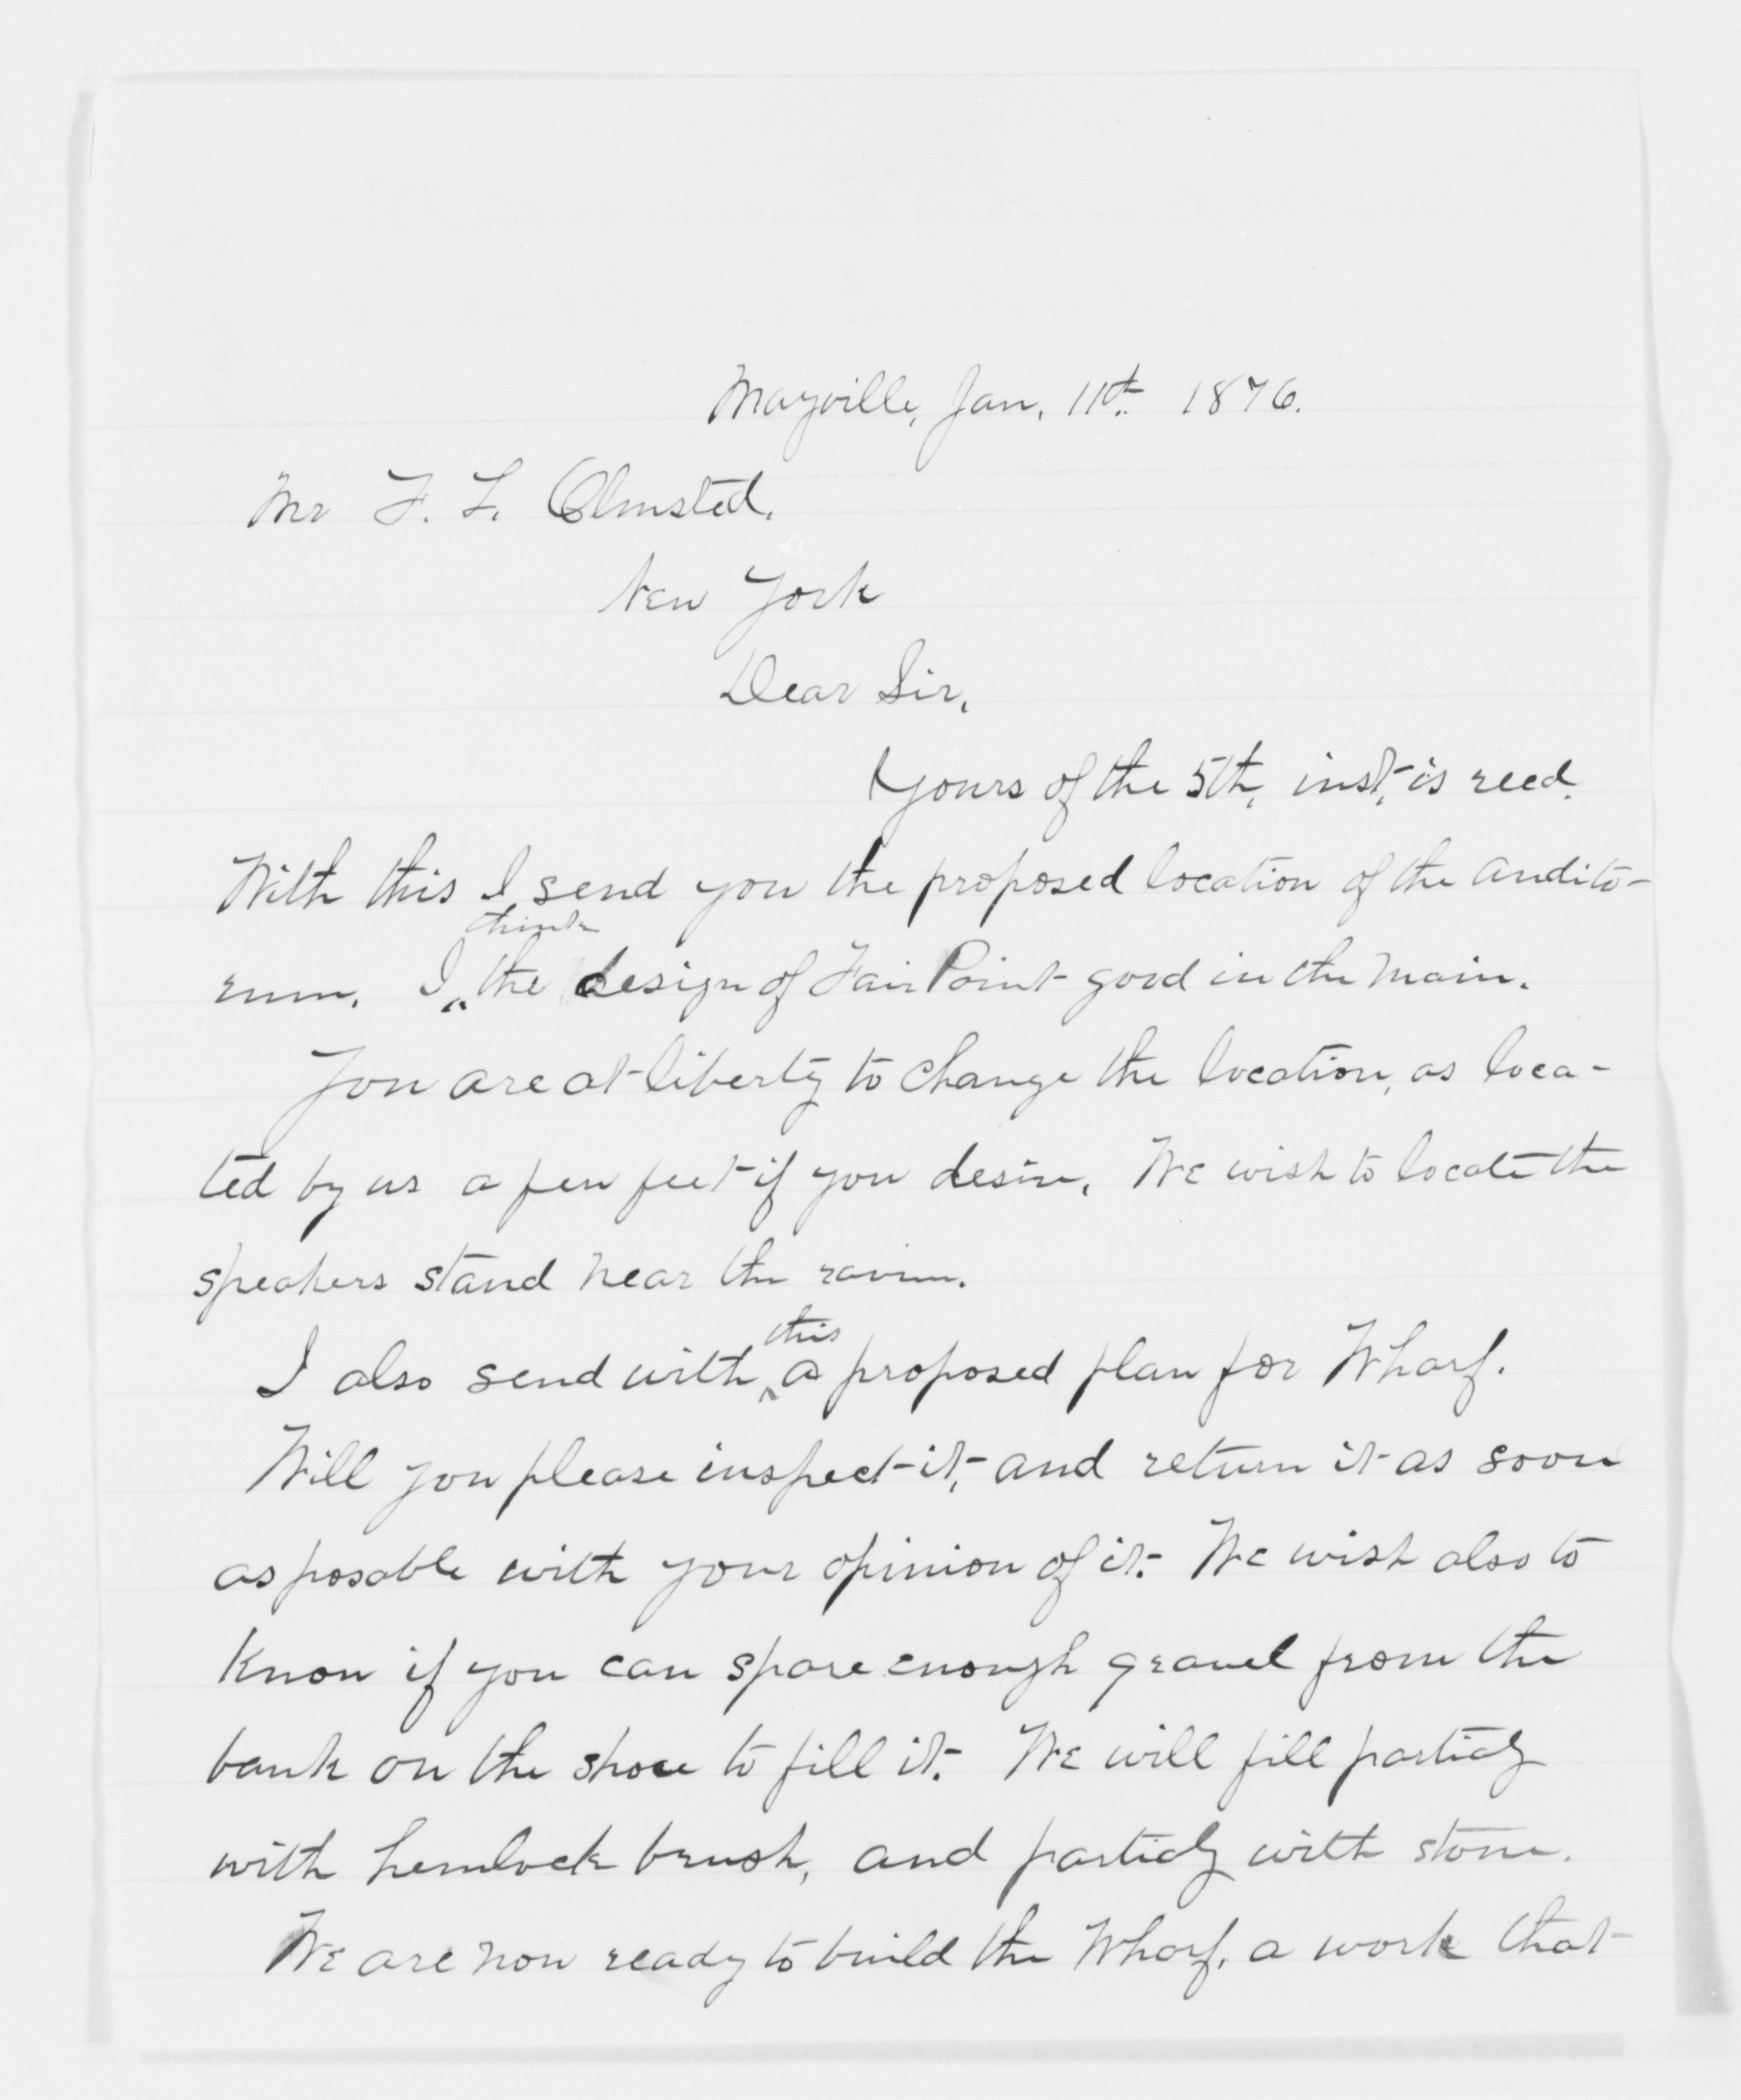 Mayville, Jan. 11th 1876.
Mr F. L. Olmsted.
New York
Dear Sir,
Yours of the 5th, inst, is recd.
With this I send you the proposed location of the audito-
rium. I think the design of Fair Point good in the main.
You are at liberty to change the location, as loca-
ted by us a few feet if you desire. We wish to locate the
speakers stand near the ravine.
I also send with this a proposed plan for Wharf.
Will you please inspect it, and return it as soon
as posable with your opinion of it. We wish also to
know if you can spare enough gravel from the
bank on the shore to fill it. We will fill partialy
with hemlock brush, and partialy with stone.
We are now ready to build the Wharf, a work that